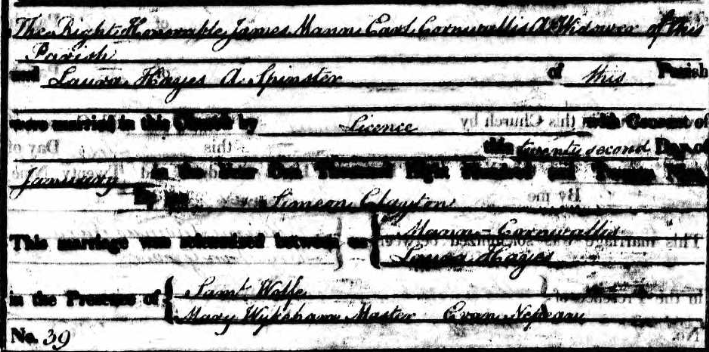 The Right Honorable James Mann Earl Cornwallis A Widower of this
Parish
and Laura Hayes A Spinster of this Parish
were married in this Church by Licence with Consent of
this twenty second Day of
January in the Year One Thousand Eight Hundred and Twenty Nine
By me Simeon Clayton
This marriage was solemnized between us { Mann-Cornwallis
Laura Hayes
in the Presence of { Saml Wolfe
Mary Wykeham Master Evan Nepean
No. 39